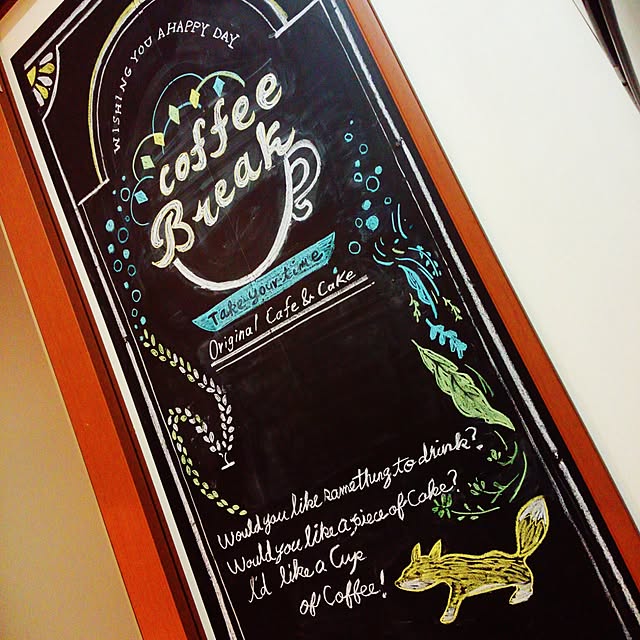 WISHING YOU A HAPPY DAY
coffee
Break
Take your time
Original Cafe & Cake
Would you like samething to drink?
Would you like a piece of Cake?
I'd like a Cup
of Coffee!